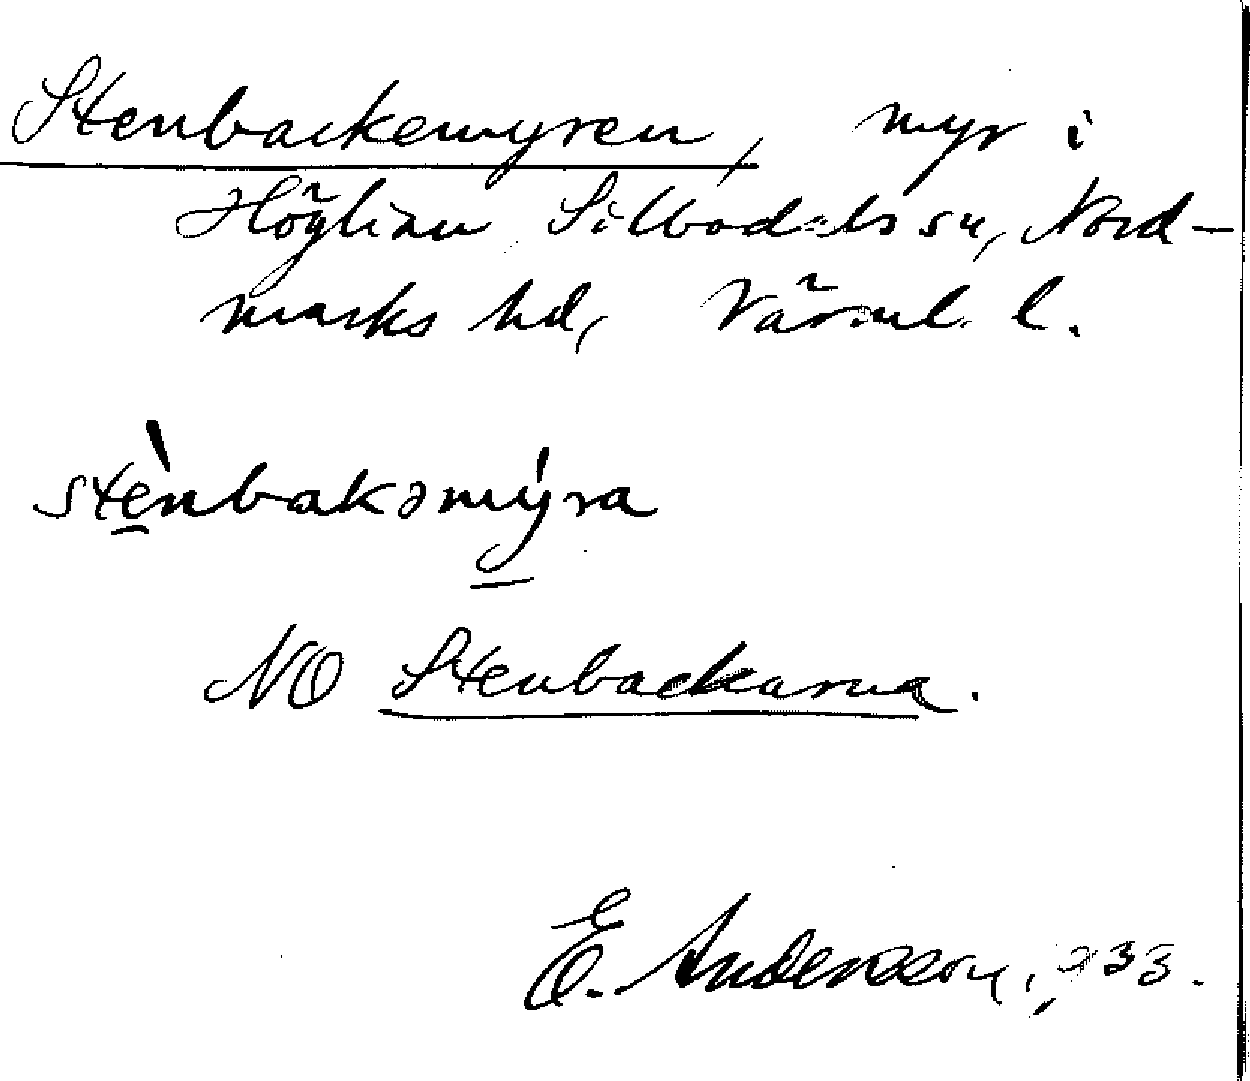 Stenbackemyren, myr i
Höglian Silbodals sn, Nord-
marks hd, Värml. l.
stènbakəmýra
NO Stenbackarna.
E. Andersson, 1933.